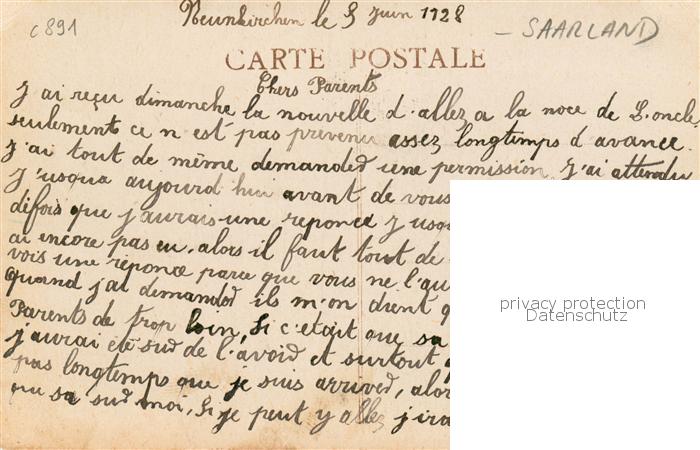 c891
Neunkirchen le 3 Juin 1928
- SAARLAND
CARTE POSTALE
Chers Parents
J'ai reçu dimanche la nouvelle d'allez a la noce de L'oncle,
seulement ce n est pas prevenu assez longtemps d avance.
J'ai tout de même demanded une permission J'ai attendu
J'usqua aujourd hui avant de vous
defois que j'aurais une reponce jusq
ai encore pas eu, alors il faut tout de
vois une réponce parce que vous ne l'au
quand j'ai demanded ils m'on dient q
Parents de trop loin, Si c'etait que sa
j'aurai été sud de l'avoid et surtout
pas longtemps que je suis arrived, alor
que sa sud moi, Si je peut y allez j'ira
privacy protection
Datenschutz